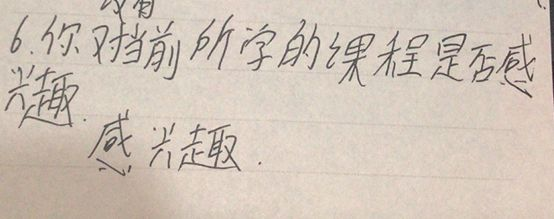 没有
6.你对当前所学的课程是否感
兴趣.
感兴趣.